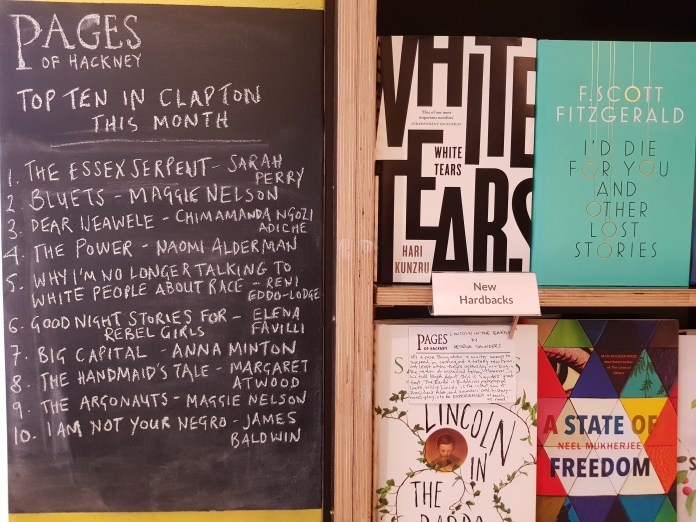 PAGES
OF HACKNEY
TOP TEN IN CLAPTON
THIS MONTH
1. THE ESSEX SERPENT - SARAH
PERRY
2 BLUETS - MAGGIE NELSON
3. DEAR IJEAWELE - CHIMAMANDA NGOZI
ADICHE
4. THE POWER - NAOMI ALDERMAN
5. WHY I'M NO LONGER TALKING TO
WHITE PEOPLE ABOUT RACE - RENI
EDDO-LODGE
6. GOOD NIGHT STORIES FOR - ELENA
REBEL GIRLS FAVILLI
7. BIG CAPITAL - ANNA MINTON
8. THE HANDMAID'S TALE - MARGARET
ATWOOD
9. THE ARGONAUTS - MAGGIE NELSON
10. I AM NOT YOUR NEGRO - JAMES
BALDWIN
WHITE
TEARS
WHITE
TEARS
HARI
KUNZRU
F. SCOTT
FITZGERALD
I'D DIE
FOR YOU
AND
OTHER
LOST
STORIES
New
Hardbacks
PAGES
OF HACKNEY
LINCOLN IN THE BARDO
BY
GEORGE SAUNDERS
LINCOLN
IN
THE
BARDO
A STATE OF
NEEL MUKHERJEE
FREEDOM